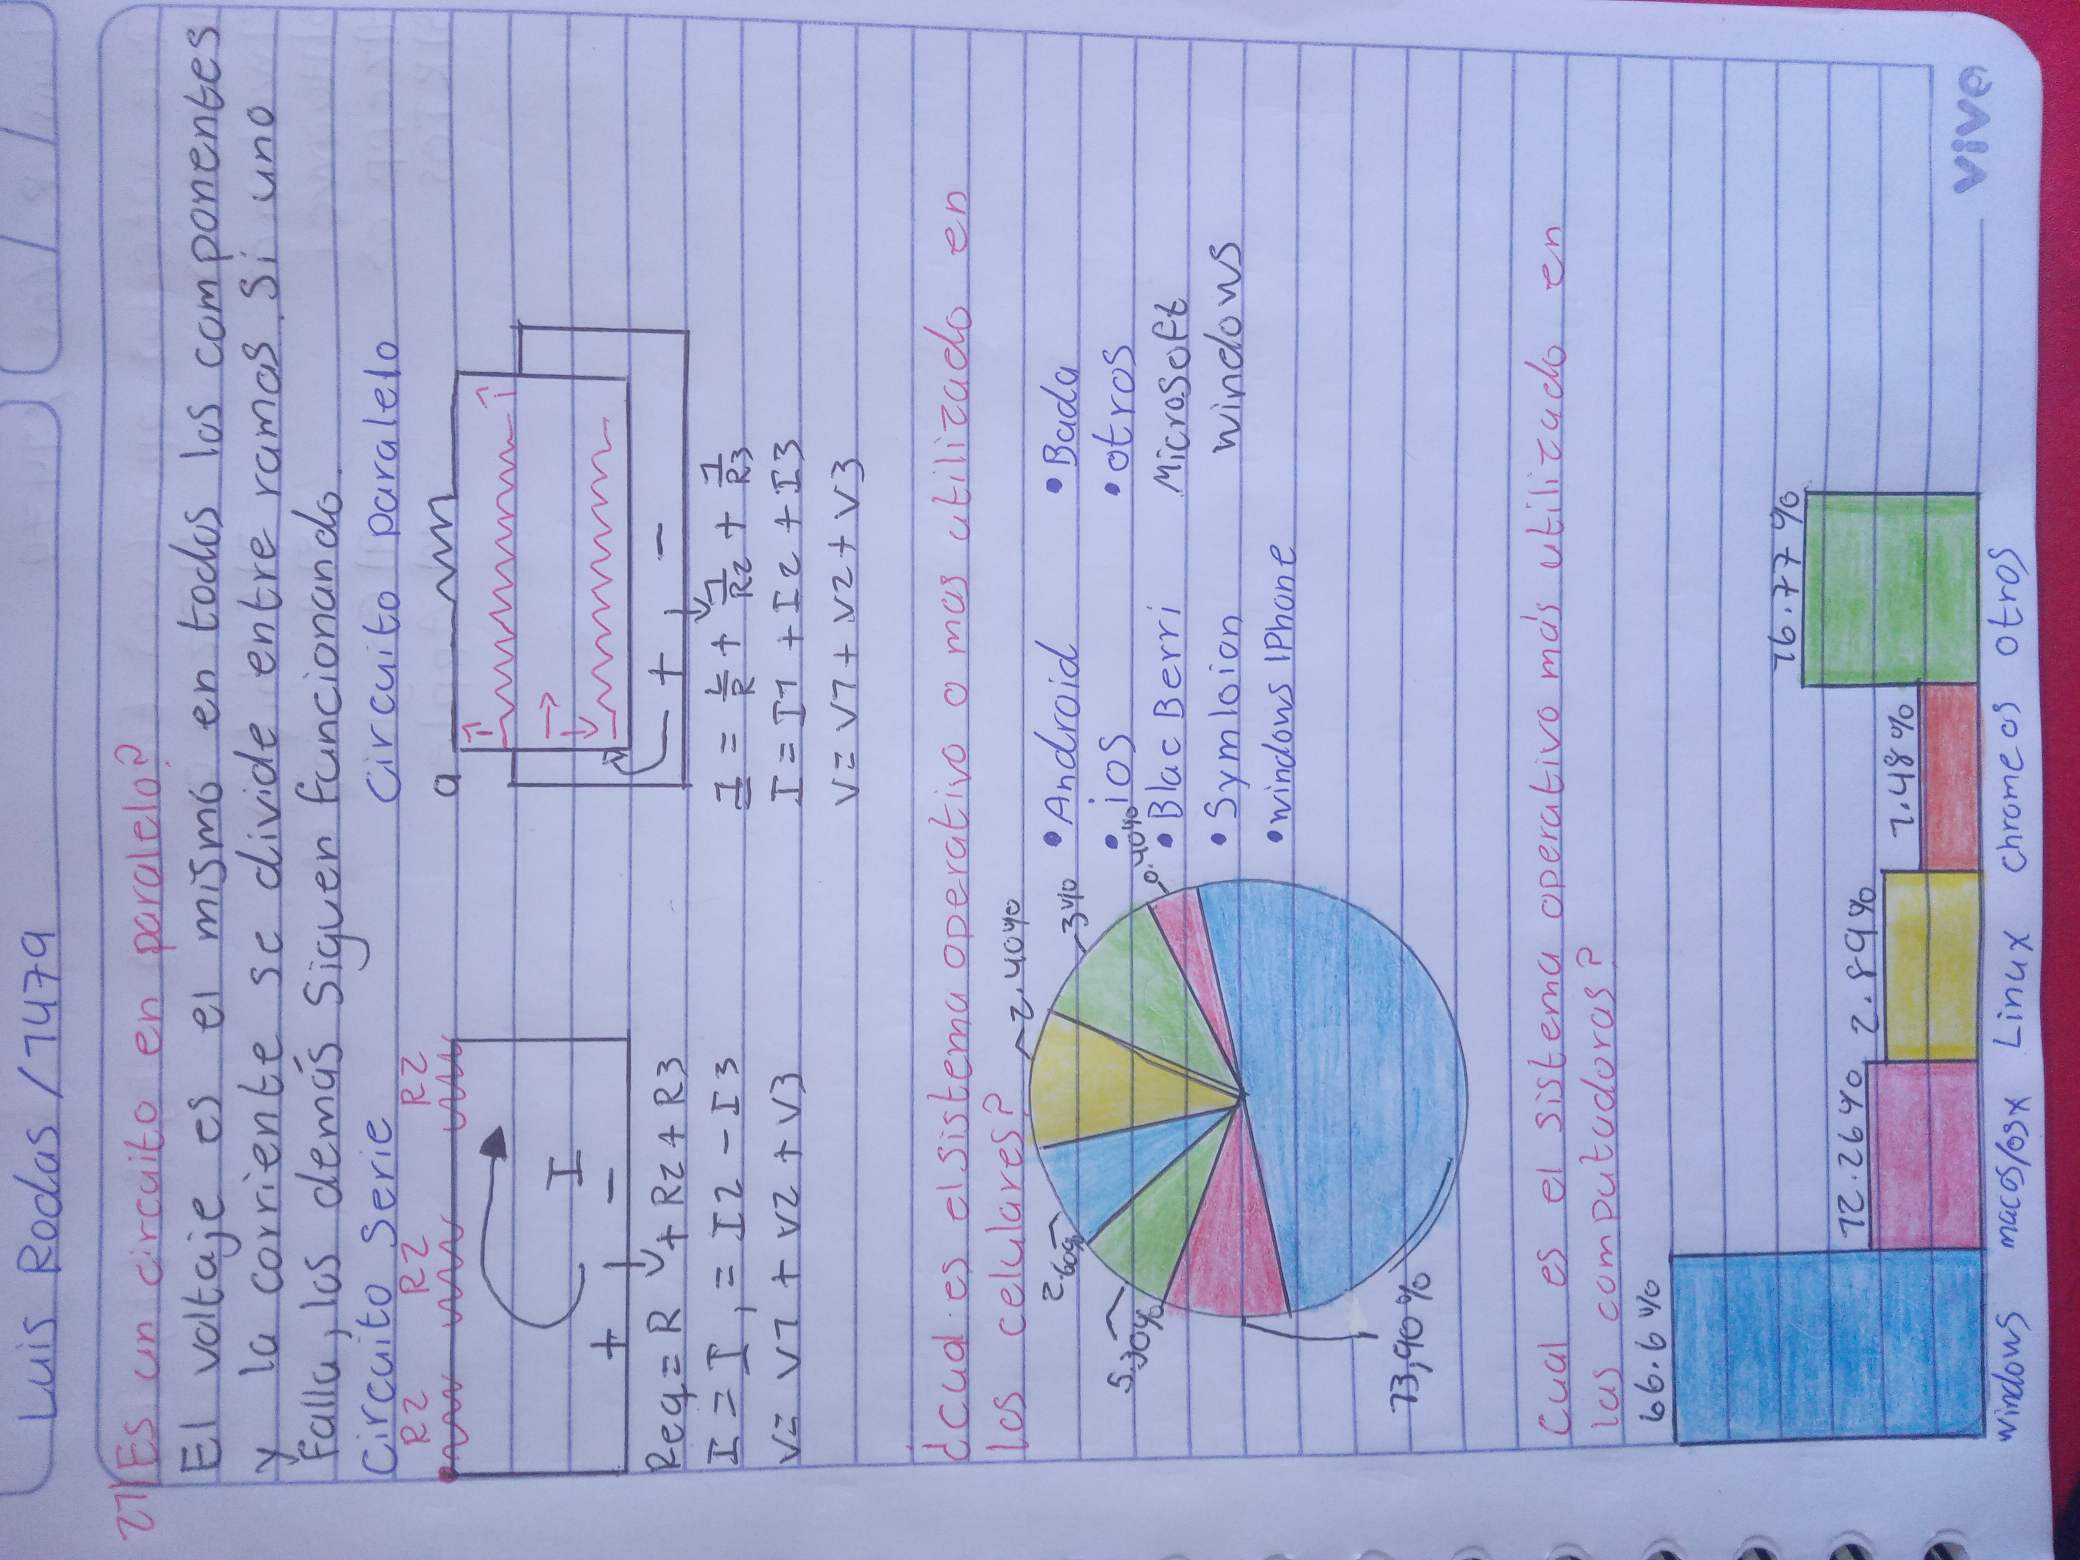 Luis Rodas / 1479
21) Es un circuito en paralelo?
El voltaje es el mismo en todos los componentes
y la corriente se divide entre ramas. Si uno
falla, los demás siguen funcionando.
Circuito Serie
R2 R2 R2
I
+ -
Req = R + R2 + R3
I = I, = I2 - I3
V = V1 + V2 + V3
Circuito paralelo
a
+ -
1 = 1/R + 1/R2 + 1/R3
I = I1 + I2 + I3
V = V1 + V2 + V3
¿Cual es el sistema operativo o mas utilizado en
los celulares?
2,40%
3%
0.40%
2.60%
5.30%
73,90%
• Android
• ios
• Blac Berri
• Symloian
• windows IPhone
• Bada
• otros
Microsoft
windows
Cual es el sistema operativo más utilizado en
las computadoras?
66.6% 12.26% 2.89% 1.48% 16.77%
windows macos/osx Linux chromeos otros
viva